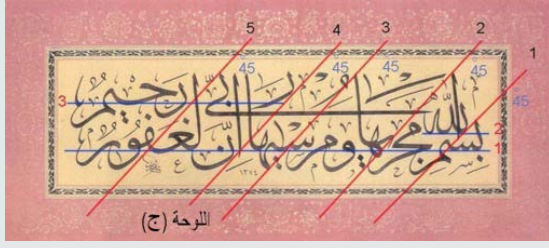 5 4 3 2 1
45 45 45 45 45
بسم الله مجريها ومرسيها إن ربي لغفور رحيم
3
2
1
اللوحة (ج)